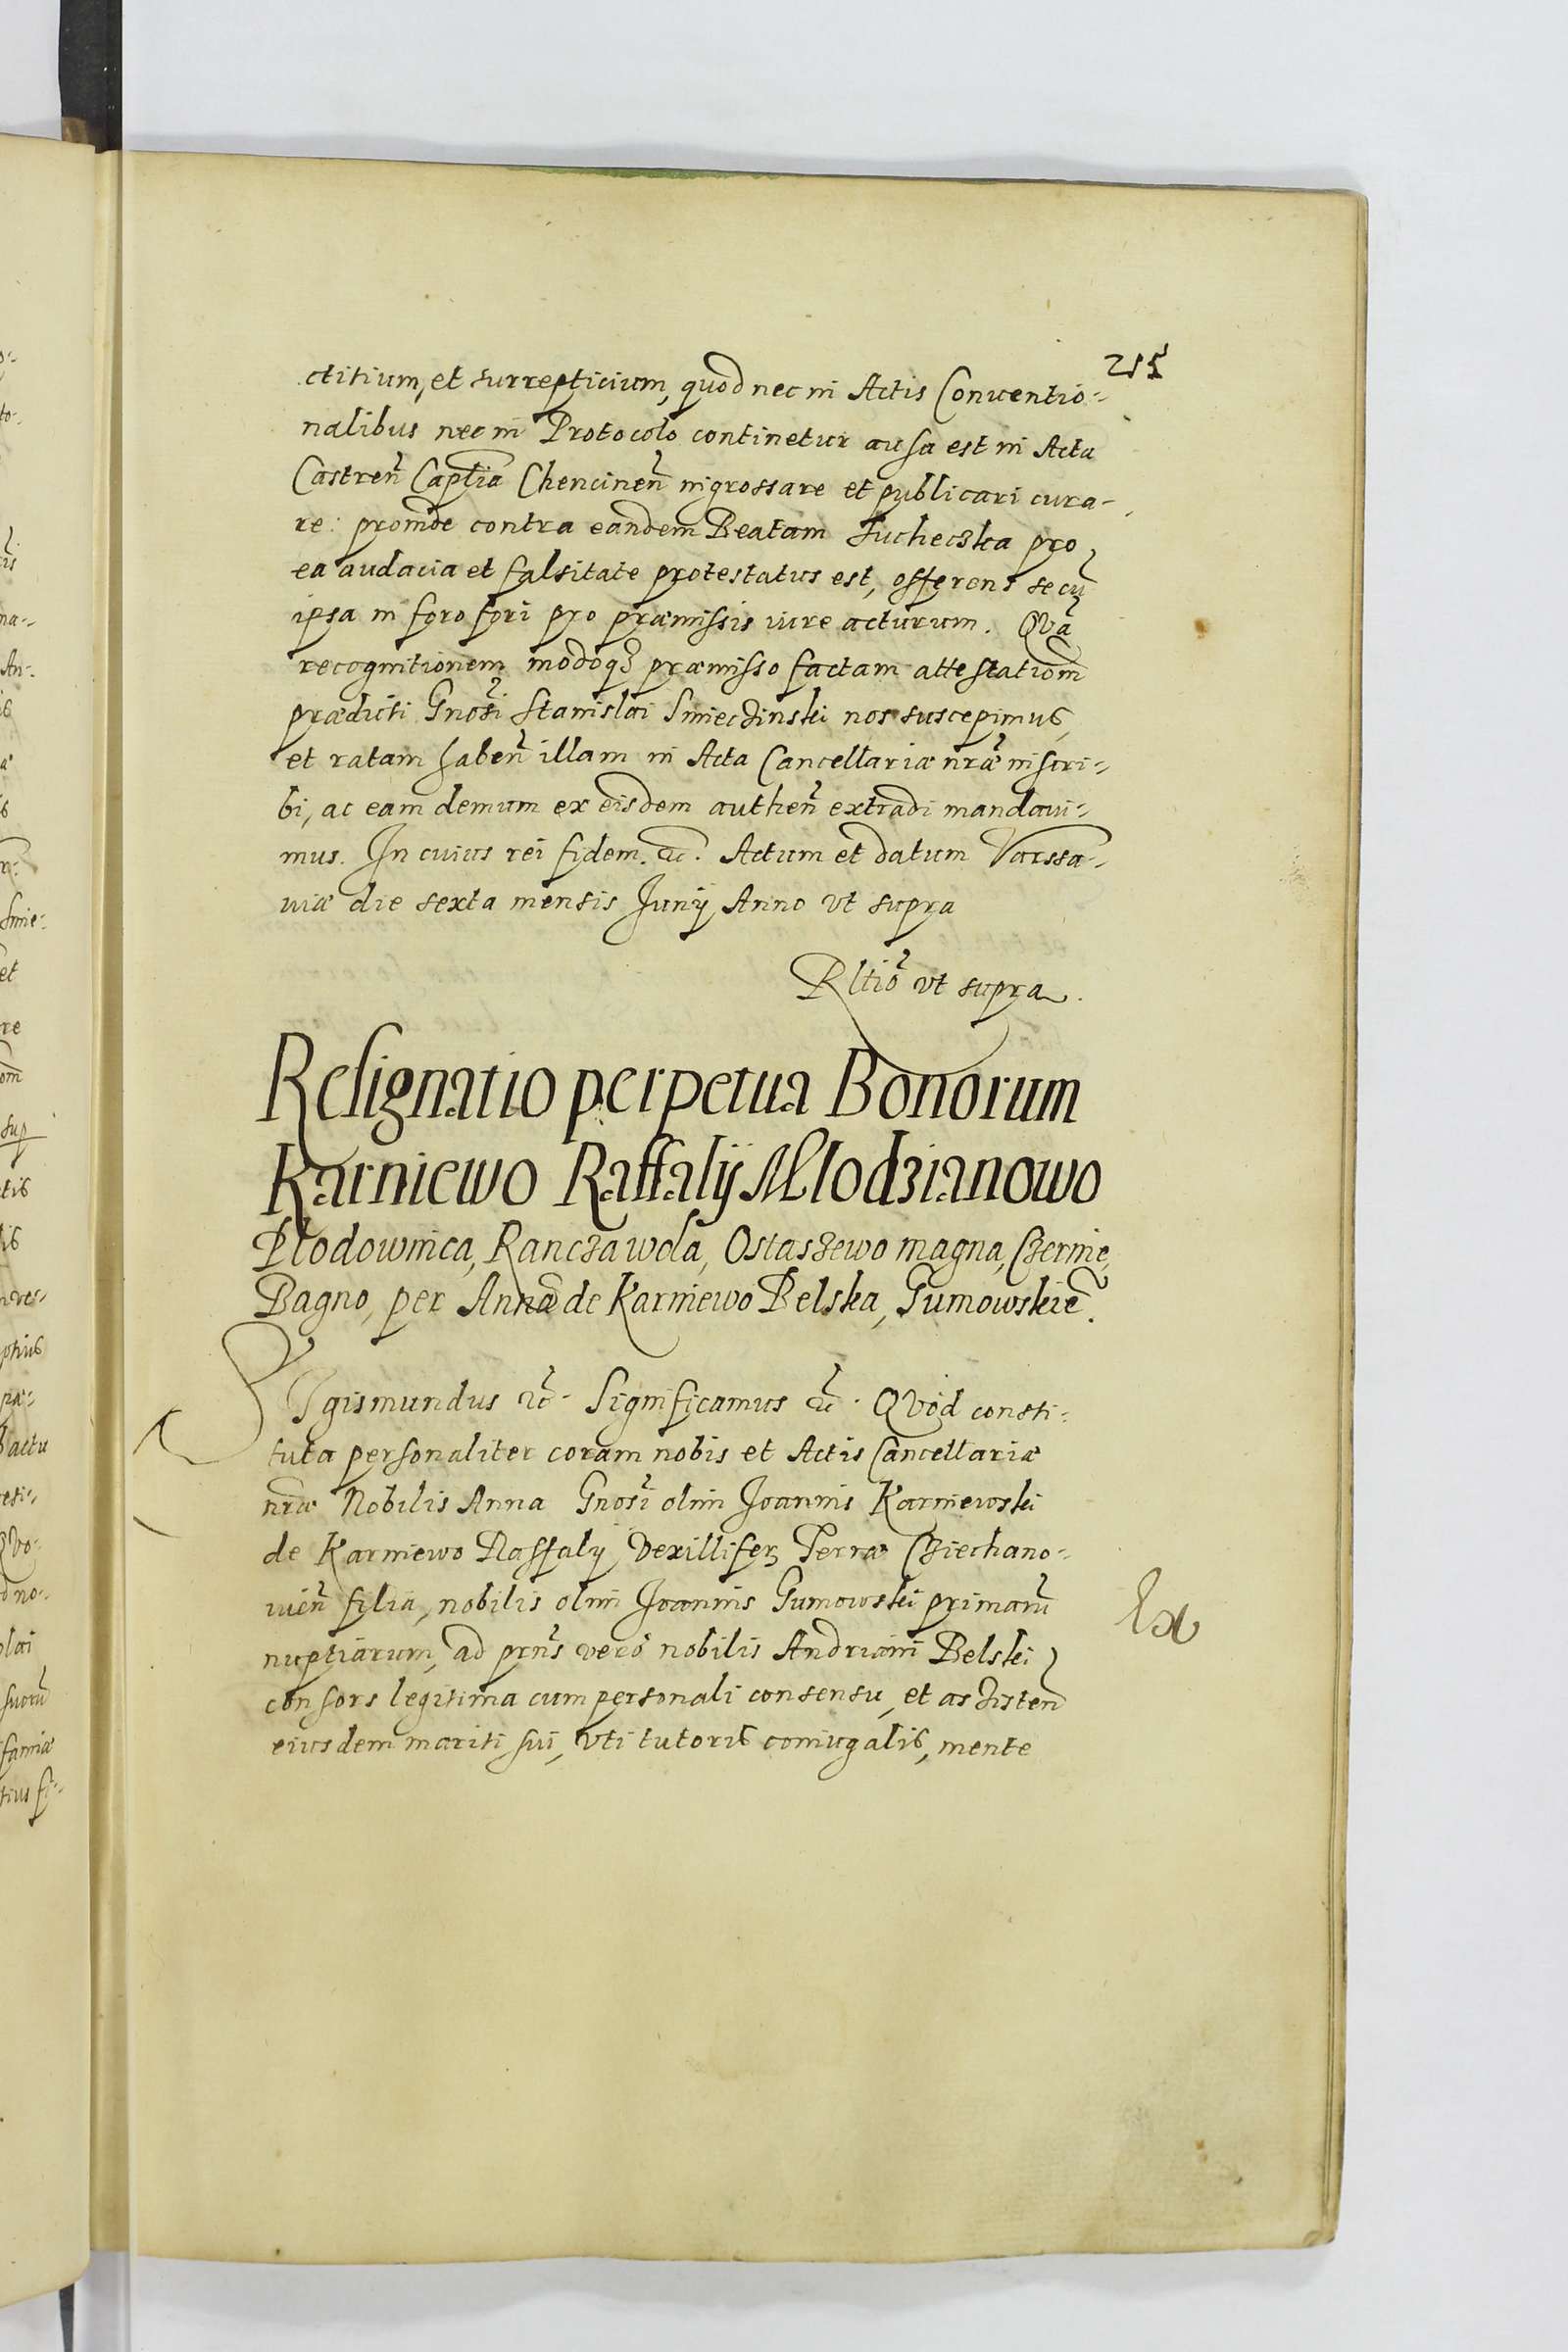 215
ctitium, et surrepticium, quod nec in Actis Conventio:
nalibus nec in Protocolo continetur ausa est in Acta
Castren̄ Captīa Chencinen̄ ingrossare et publicari cura-
re: proinde contra eandem Beatam Suchecska pro
ea audacia et falsitate protestatus est, offerens se cū
ipsa in foro fori pro præmissis iure acturum. Qvā
recognitionem modoq₃ præmisso factam attestatiom̄
prædicti Gnosī Stanislai Smiedzinski nos suscepimus,
et ratam haben̄ illam in Acta Cancellariæ nrǣ inscri:
bi, ac eam demum ex eisdem authen̄ extradi mandavi:
mus. In cuius rei fidem. &c. Actum et datum Varssa-
viæ die sexta mensis Junij Anno vt supra
Rltiō vt supra.
Resignatio perpetua Bonorum
Karniewo Raffalij Mlodzianowo
Plodownica, Ranczawola, Ostaszewo magna, Czernie,
Bagno, per Annā de Karniewo Belska, Gumowskiē.
SIgismundus &c. Significamus &c. Qvod consti:
tuta personaliter coram nobis et Actis Cancellariæ
nrǣ Nobilis Anna Gnosī olim Joannis Karniewski
de Karniewo Raffalij Vexilliferi Terræ Cziechano:
vien̄ filia, nobilis olim Joannis Gumowski primarū
nuptiarum, ad prn̄s vero nobilis Andriani Belski
consors legitima cum personali consensu, et assisten̄
eiusdem mariti sui, vti tutoris coniugalis, mente